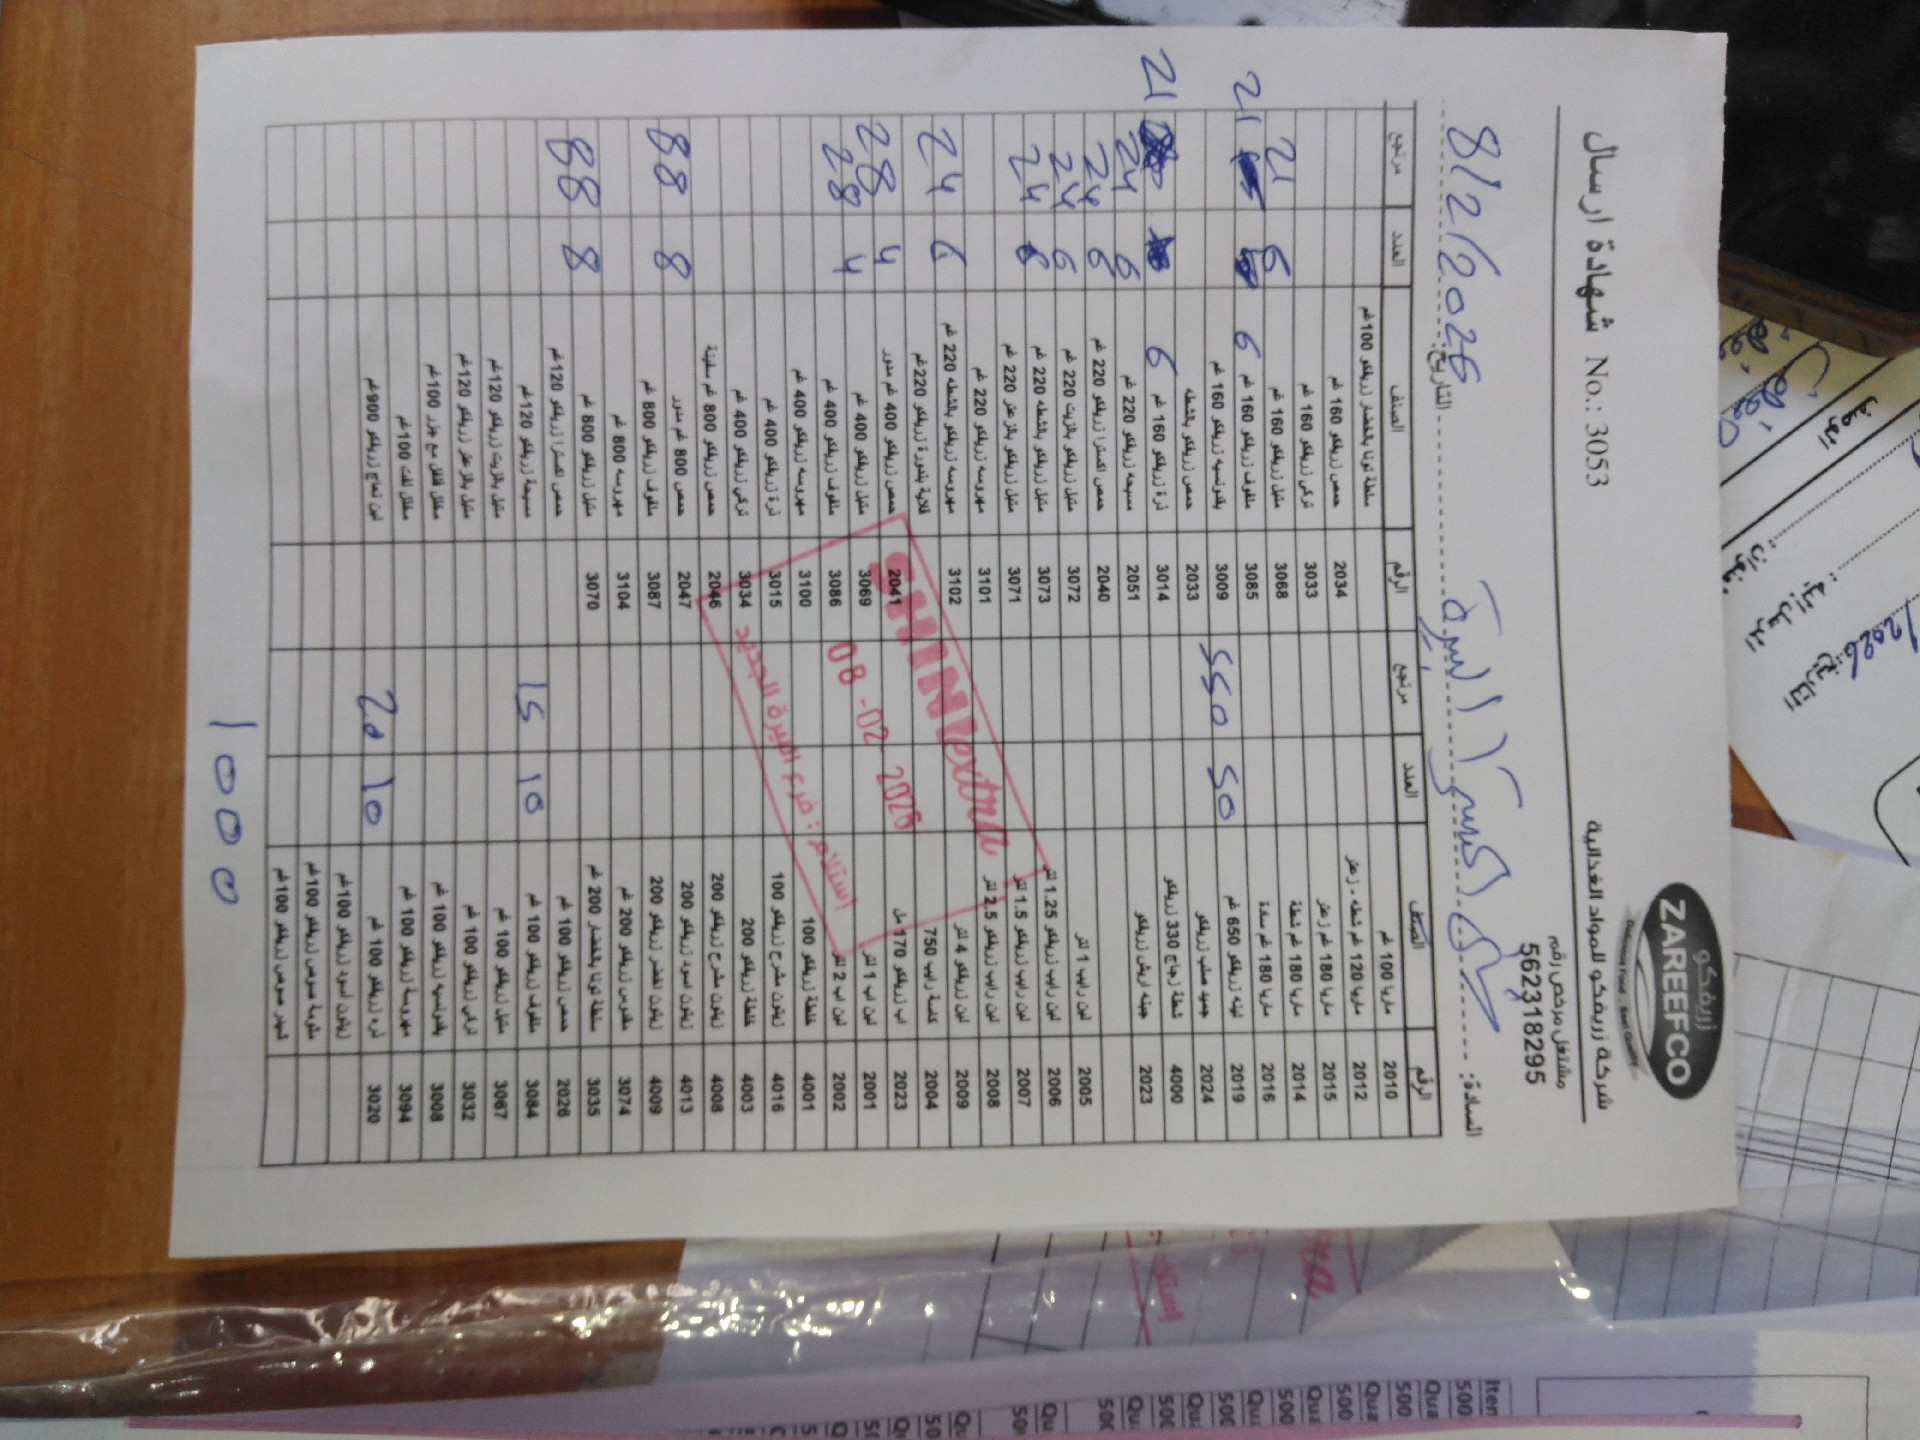 زريفكو
ZAREEFCO
Delicious Food - Best Quality
شركة زريفكو للمواد الغذائية
شهادة ارسال No.: 3053
مشتغل مرخص رقم
562318295
السادة: شني اكسترا البيرة التاريخ: 8/2/2026
الرقم الصنف العدد مرتجع الرقم الصنف العدد مرتجع
2010 ماريا 100 غم سلطة تونا بالخضار زريفكو 100غم
2012 ماريا 120 غم شطه - زعتر 2034 حمص زريفكو 160 غم
2015 ماريا 180 غم زعتر 3033 تركي زريفكو 160 غم
2014 ماريا 180 غم شطة 3068 متبل زريفكو 160 غم 6 21
2016 ماريا 180 غم سادة 3085 ملفوف زريفكو 160 غم 6 21
2019 لبنه زريفكو 650 غم 50 550 3009 بقدونسيه زريفكو 160 غم
2024 جميد صلب زريفكو 2033 حمص زريفكو بالشطه
4000 شطة زجاج 330 زريفكو 3014 ذرة زريفكو 160 غم 6 21
2023 جبنه اريش زريفكو 2051 مسبحه زريفكو 220 غم 6 24
2040 حمص اكسترا زريفكو 220 غم 6 24
2005 لبن رايب 1 لتر 3072 متبل زريفكو بالزيت 220 غم 6 24
2006 لبن رايب زريفكو 1.25 لتر 3073 متبل زريفكو بالشطه 220 غم 6 24
2007 لبن رايب زريفكو 1.5 لتر 3071 متبل زريفكو بالزعتر 220 غم
2008 لبن رايب زريفكو 2.5 لتر 3101 مهروسه زريفكو 220 غم
2009 لبن زريفكو 4 لتر 3102 مهروسه زريفكو بالشطه 220 غم 6 24
2004 كاسة رايب 750 قلاية بندورة زريفكو 220غم
2023 اب زريفكو 170 مل 2041 حمص زريفكو 400 غم مدور 4 28
2001 لبن اب 1 لتر 3069 متبل زريفكو 400 غم 4 28
2002 لبن اب 2 لتر 3086 ملفوف زريفكو 400 غم
4001 خلطة زريفكو 100 3100 مهروسه زريفكو 400 غم
4016 زيتون مشرح زريفكو 100 3015 ذرة زريفكو 400 غم
4003 خلطة زريفكو 200 3034 تركي زريفكو 400 غم
4008 زيتون مشرح زريفكو 200 2046 حمص زريفكو 800 غم سفينة
4013 زيتون اسود زريفكو 200 2047 حمص 800 غم مدور 8 88
4009 زيتون اخضر زريفكو 200 3087 ملفوف زريفكو 800 غم
3074 مقدوس زريفكو 200 غم 3104 مهروسه 800 غم
3035 سلطة تونا بالخضار 200 غم 3070 متبل زريفكو 800 غم 8 88
2026 حمص زريفكو 100 غم حمص اكسترا زريفكو 120غم
3084 ملفوف زريفكو 100 غم 10 15 مسبحة زريفكو 120غم
3067 متبل زريفكو 100 غم متبل بالزيت زريفكو 120غم
3032 تركي زريفكو 100 غم متبل بالزعتر زريفكو 120غم
3008 بقدونسيه زريفكو 100 غم مخلل فلفل مع جزر 100غم
3094 مهروسة زريفكو 100 غم مخلل لفت 100غم
3020 ذره زريفكو 100 غم 10 20 لبن نعاج زريفكو 900غم
زيتون اسود زريفكو 100غم
شومة سويس زريفكو 100غم
شهير سويس زريفكو 100غم
1000
SHINI extra
08 -02- 2026
استلام: فرع البيرة الجديد